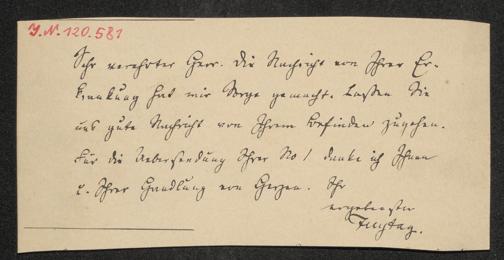 I.N. 120.581
Sehr verehrter Herr. Die Nachricht von Ihrer Er-
krankung hat mir Sorge gemacht. Lassen Sie
uns gute Nachricht von Ihrem Befinden zugehen.
Für die Uebersendung Ihrer No 1 danke ich Ihnen
u. Ihrer Handlung von Herzen. Ihr
ergebenster
Freytag.